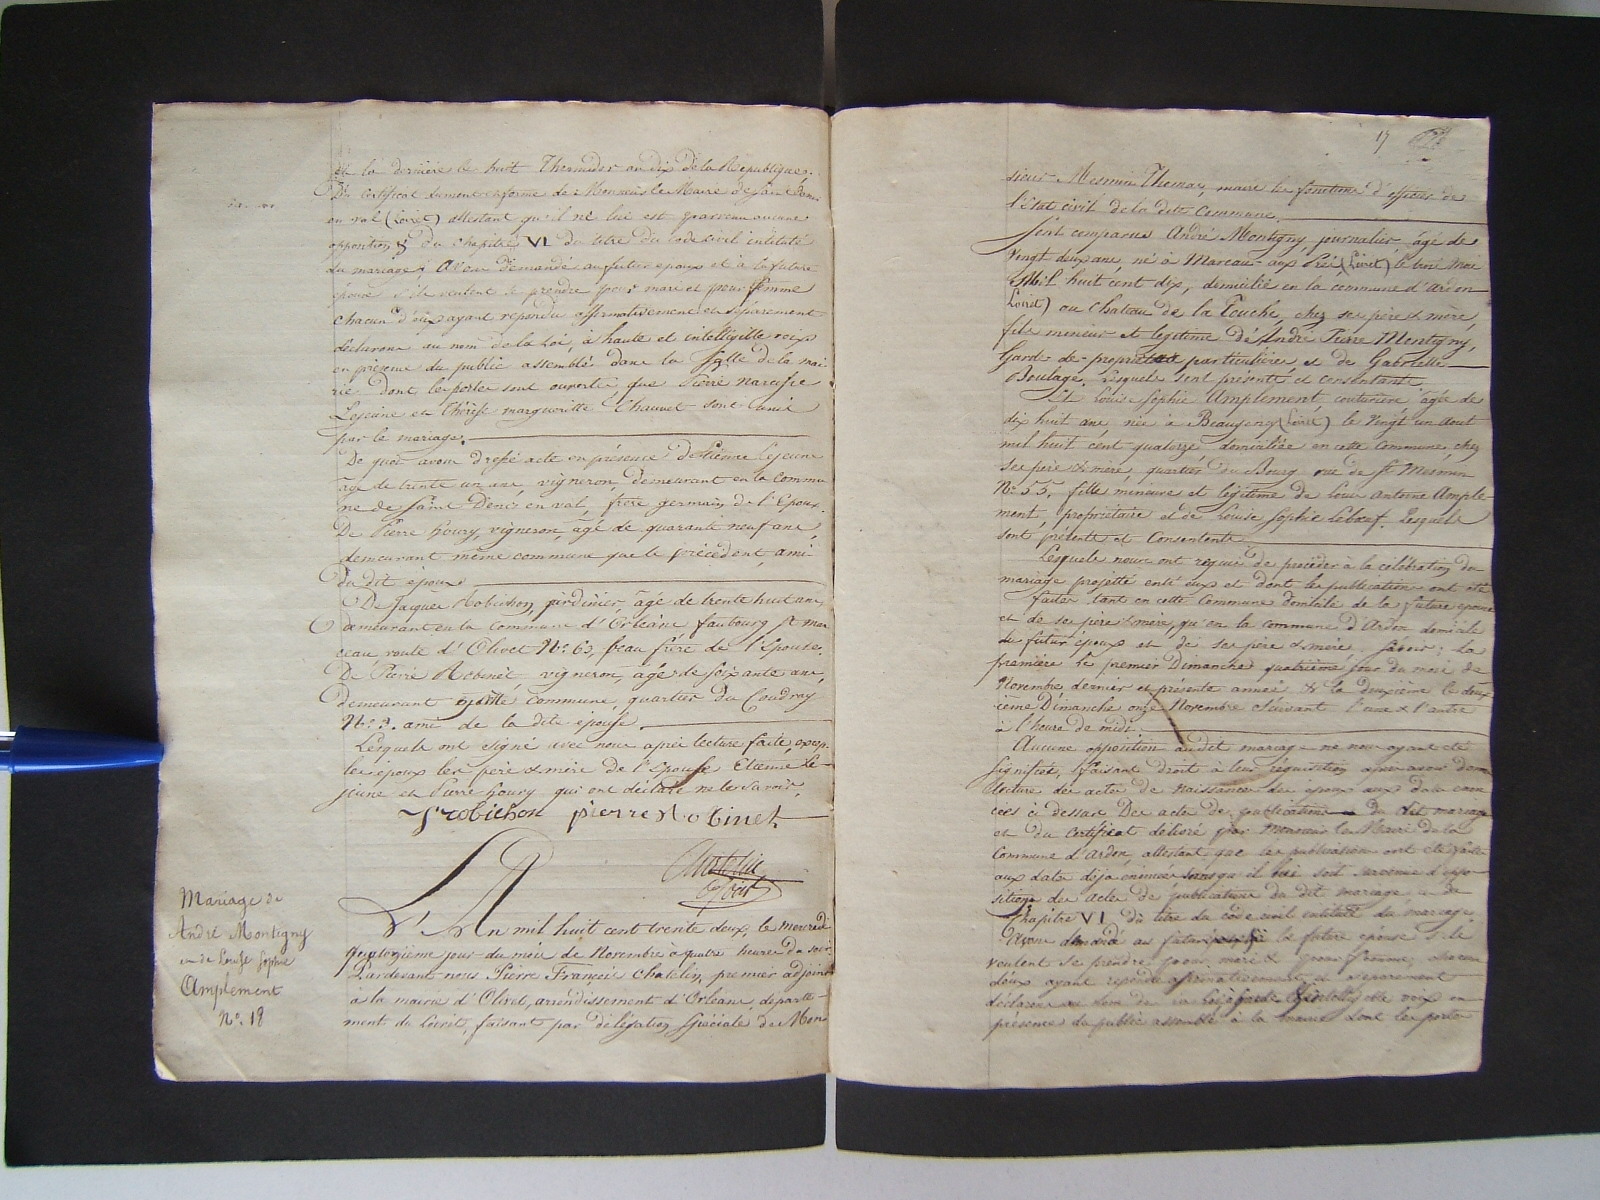 et la dernière le huit Thermidor an dix de la République.
Du certificat dument en forme de Monsieur le Maire de Saint Denis
en val (Loiret) attestant qu'il ne lui est parvenu aucune
opposition, & du chapitre VI du titre du code civil intitulé
du mariage, avons demandé au futur époux et à la future
épouse s'ils veulent se prendre pour mari et pour femme
chacun d'eux ayant repondu affirmativement et séparément
déclarons au nom de la Loi, à haute et intelligible voix
en présence du public assemblé dans la Salle de la mai
rie dont les portes sont ouvertes que Pierre narcisse
Lejeune et Thérèse margueritte Chauvet sont unis
par le mariage.
De quoi avons dressé acte en présence de Etienne Lejeune
âgé de trente un ans, vigneron, demeurant en la commu
ne de Saint Denis en val, frère germain de l'Epoux.
De Pierre houry, vigneron, âgé de quarante neuf ans,
demeurant même commune que le précédent, ami
du dit époux
De Jacques Robichon, jardinier, âgé de trente huit ans,
demeurant en la commune d'Orléans faubourg St mar
ceau route d'Olivet N° 63, beau frère de l'Epouse.
De Pierre Robinet, vigneron, âgé de soixante ans,
demeurant commune, quartier du Coudray
ami de la dite epouse
Lesquels ont signé avec nous après lecture faite, excep.
les époux les père & mère de l'Epouse Etienne Le-
jeune et Pierre houry qui ont déclaré ne le savoir.
Jrobichon pierre Robinet
Chatelin
adjoint
Mariage de
André Montigny
et de Louise Sophie
Amplement
N°. 18
L'An mil huit cent trente deux, le mercredi
quatorzième jour du mois de Novembre à quatre heures du soir
Pardevant nous Pierre François Chatelin, premier adjoint
à la mairie d'Olivet, arrondissement d'Orléans, départe-
ment du Loiret, faisant par délégation spéciale de Mon
17
sieur Mesmin Thomas maire les fonctions d'officier de
l'état civil de la dite Commune.
Sont comparus André Montigny, journalier, âgé de
vingt deux ans, né à Mareau-aux Prés (Loiret) le trois mai
Mil huit cent dix, domicilié en la commune d'Ardon
(Loiret) au Chateau de la Touche, chez ses père & mère,
fils mineur et légitime d'André Pierre Montigny,
Garde de propriétés particulières et de Gabrielle
Boulage. Lesquels sont présents et consentants.
Et Louise Sophie Amplement couturière âgée de
dix huit ans née à Beaugency (Loiret) le vingt un aout
mil huit cent quatorze domiciliée en cette Commune, chez
ses père & mère, quartier du Bourg, rue de St Mesmin
N° 55, fille mineure et légitime de Louis Antoine Ample-
ment, propriétaire et de Louise Sophie Lebœuf. Lesquels
sont présents et Consentants
Lesquels nous ont requis de procéder à la célébration du
mariage projetté entr'eux et dont les publications ont été
faites tant en cette Commune domicile de la future epouse
et de ses père & mère, qu'en la commune d'Ardon domicile
du futur époux et de ses père & mère. Savoir : La
première le premier Dimanche quatrième jour du mois de
Novembre dernier et présente année & la deuxième le deux
ième Dimanche onze Novembre Suivant l'une & l'autre
à l'heure de midi.
Aucune opposition au dit mariage ne nous ayant été
signifiée, faisant droit à leur réquisition après avoir donné
lecture des actes de naissance des époux aux dates énon
cées ci dessus Des actes de publications du dit mariage
et du certificat délivré par Monsieur le Maire de la
Commune d'Ardon, attestant que les publications ont été faites
aux dates déja énoncées sans qu'il lui soit survenu d'oppo
sition des actes de publications du dit mariage & du
Chapitre VI du titre du code civil intitulé du mariage
Avons demandé au futur époux la future épouse s'ils
veulent se prendre pour mari & pour femme, chacun
d'eux ayant répondu affirmativement et séparément
déclarons au nom de la Loi à haute intelligible voix en
présence du public assemblé à la mairie dont les portes